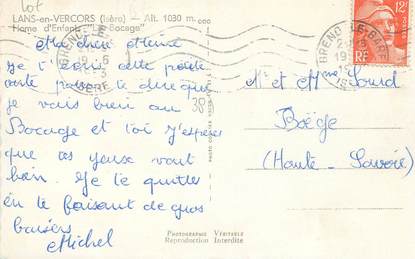 lot
LANS-en-VERCORS (Isère) — Alt. 1030 m.
Home d'Enfants "Le Bocage"
Ma chère Meine
Je t'écris cette petite
carte pour te dire que
je vais bien au
Bocage et toi J'espère
que tes yeux vont
bien. Je te quitte
en te faisant de gros
baisers
Michel
38
12F
ISERE
Mr et Mme Lourd
Boëge
(Haute-Savoie)
PHOTOGRAPHIE VÉRITABLE
Reproduction Interdite